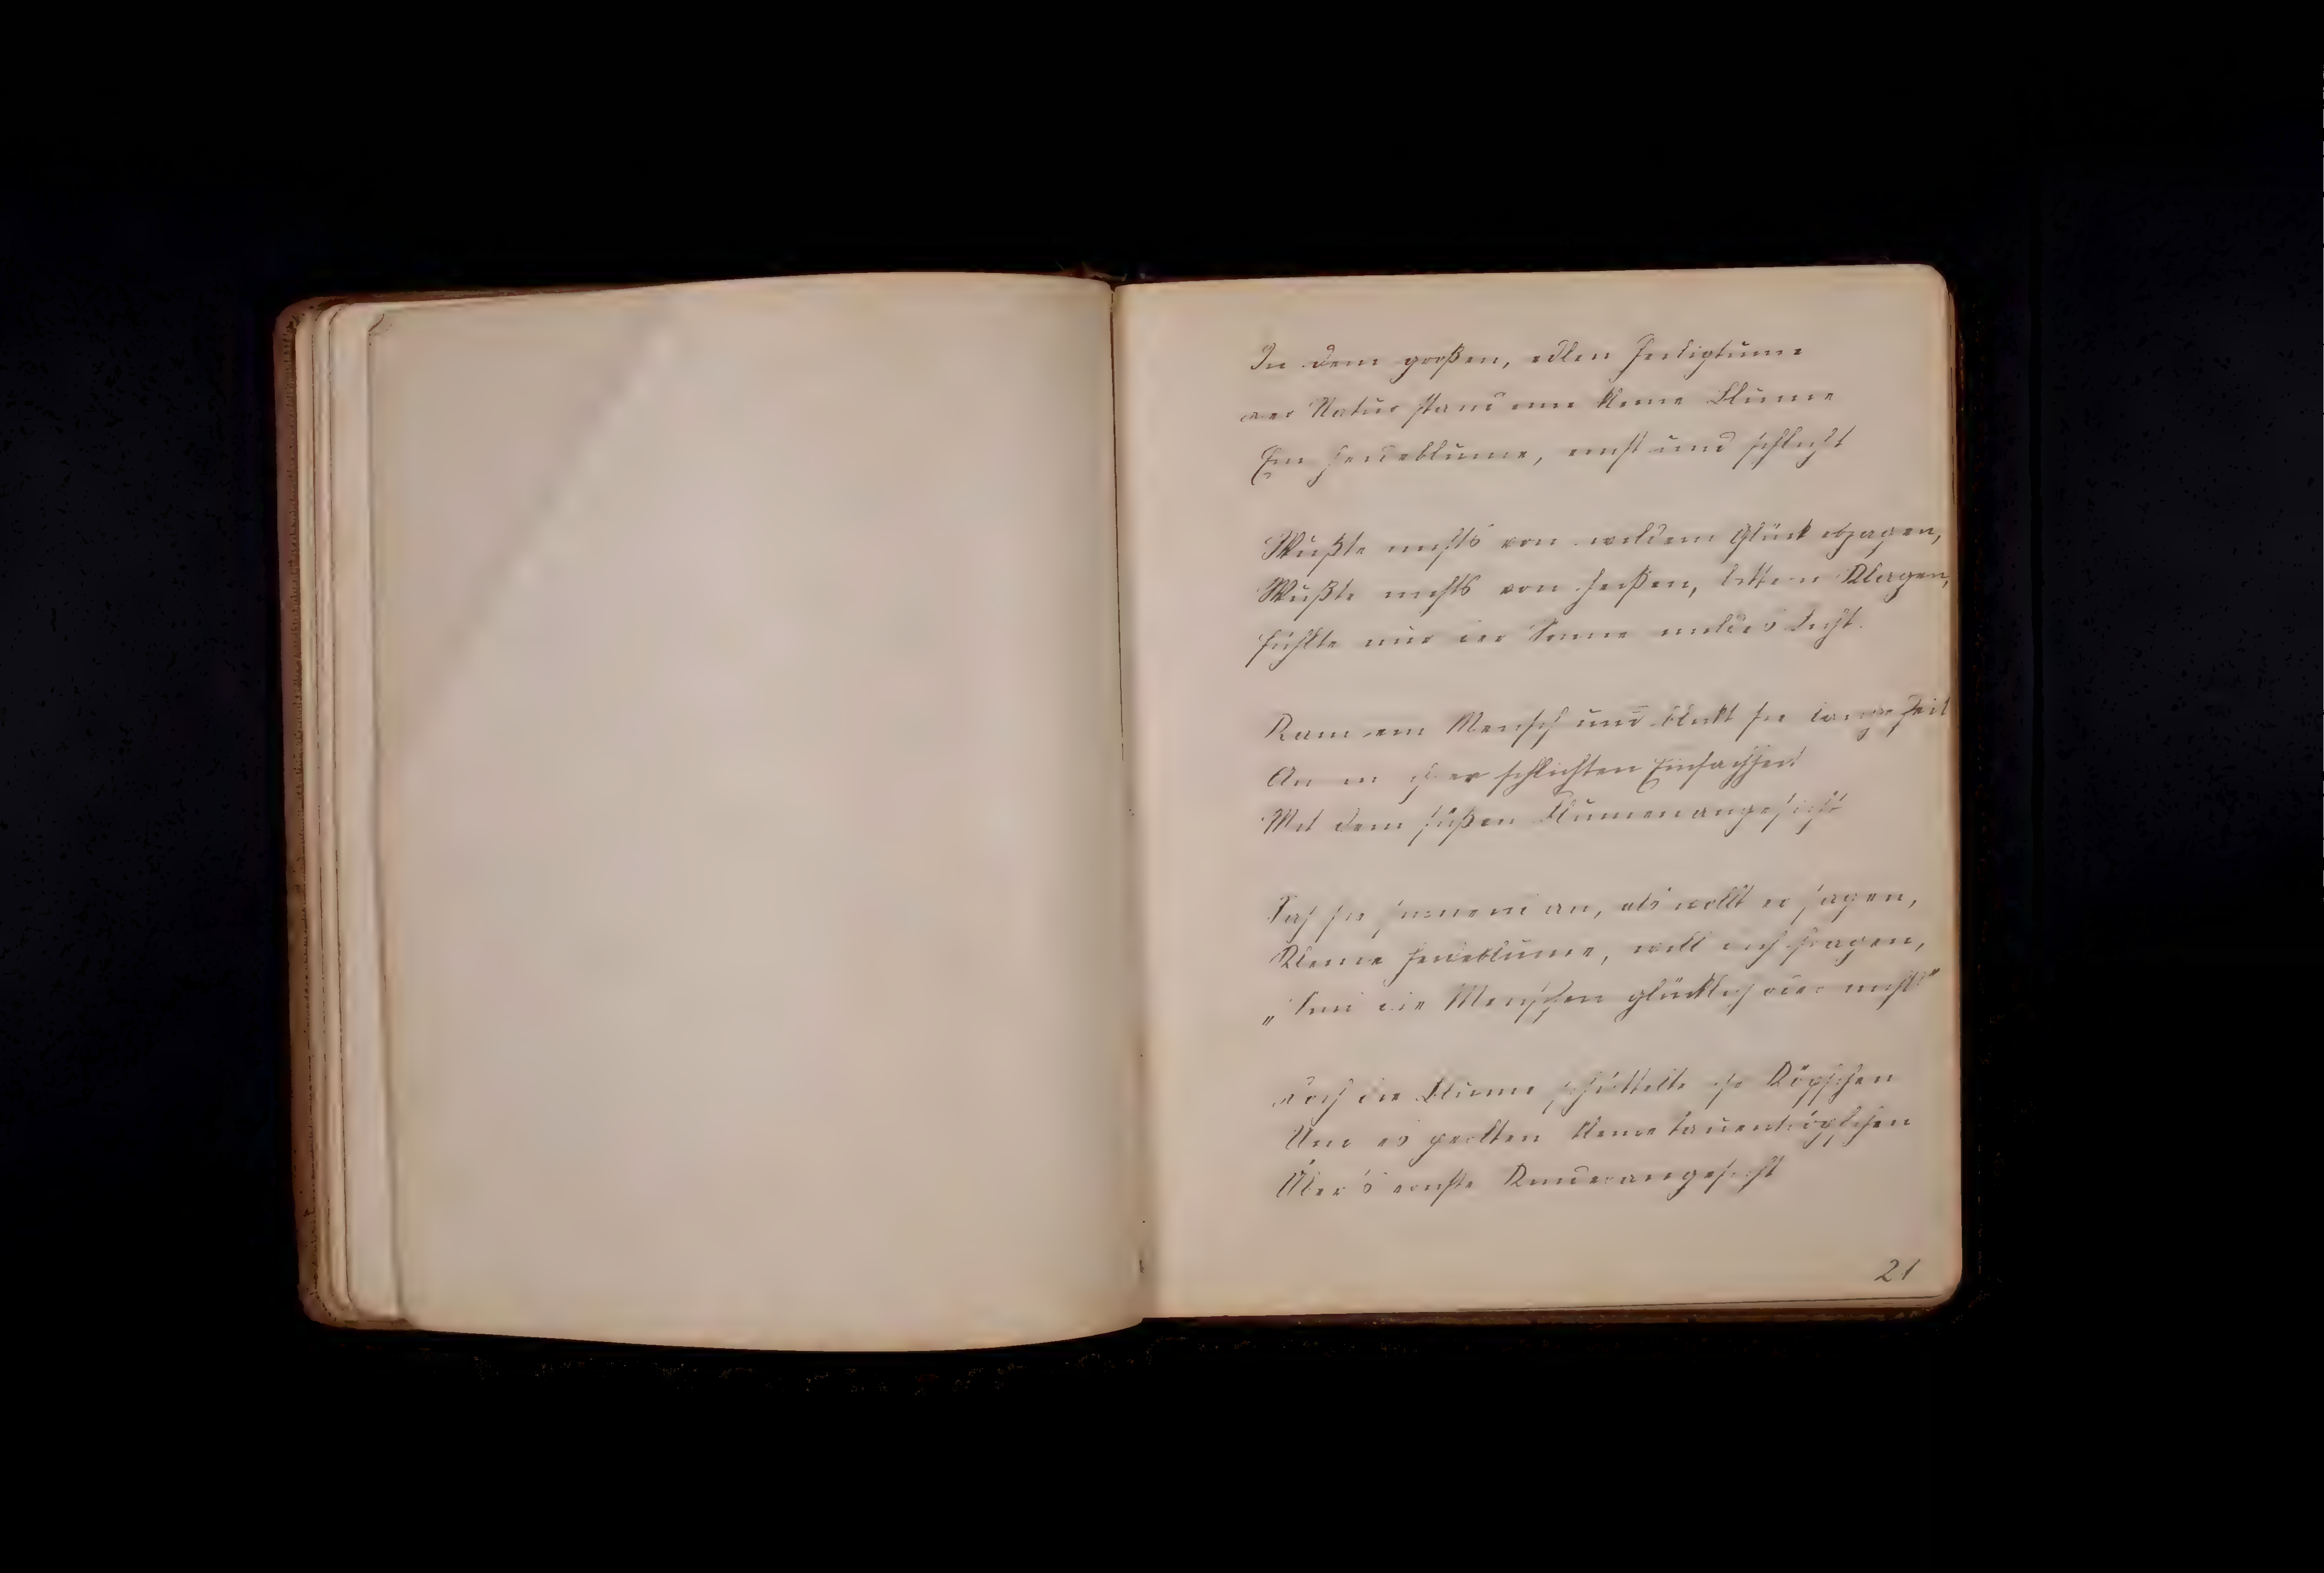 In dem großen, edlen Heiligtume
der Natur stand eine kleine Blume
Ein Heideblume, ernst und schlicht
Wußte nichts von wildem Glück
Wußte nichts von heißen, bittern Klagen,
Fühlte nur der Sonne mildes Licht.
Kam ein Mensch und blickt sie lange Zeit
An in ihrer schlichten Einfachheit
Mit dem süßen Blumenangesicht
Sah sie an, als wollt er sagen,
Kleine Heideblume, will dich fragen,
„Sind die Menschen glücklich oder nicht"
Doch die Blume schüttelte ihr Köpfchen
Und es perlten kleine Tauentröpfchen
Über's ernste Kinderangesicht
21